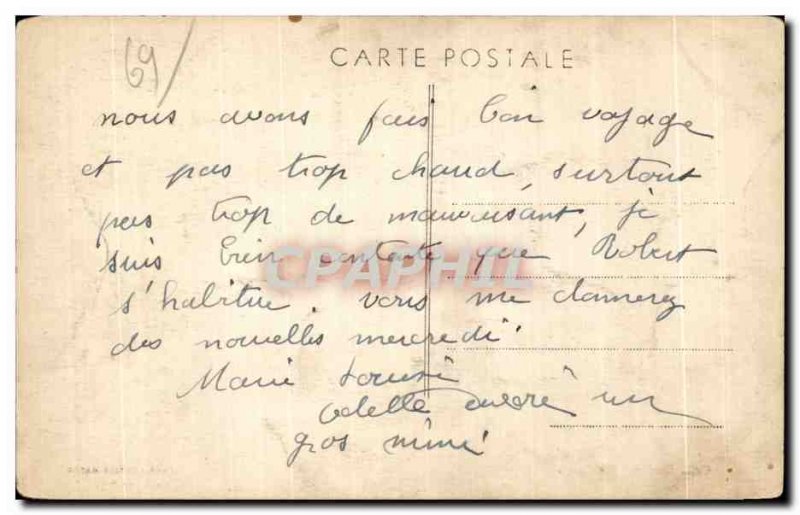 69
CARTE POSTALE
nous avons fais bon voyage
et pas trop chaud, surtout
pas trop de mauvaisant, je
suis bien contante que Robert
s'habitue. vous me donnerez
des nouvelles mercredi
CPAPHIL
Marie Louise
Odette André un
gros mimi